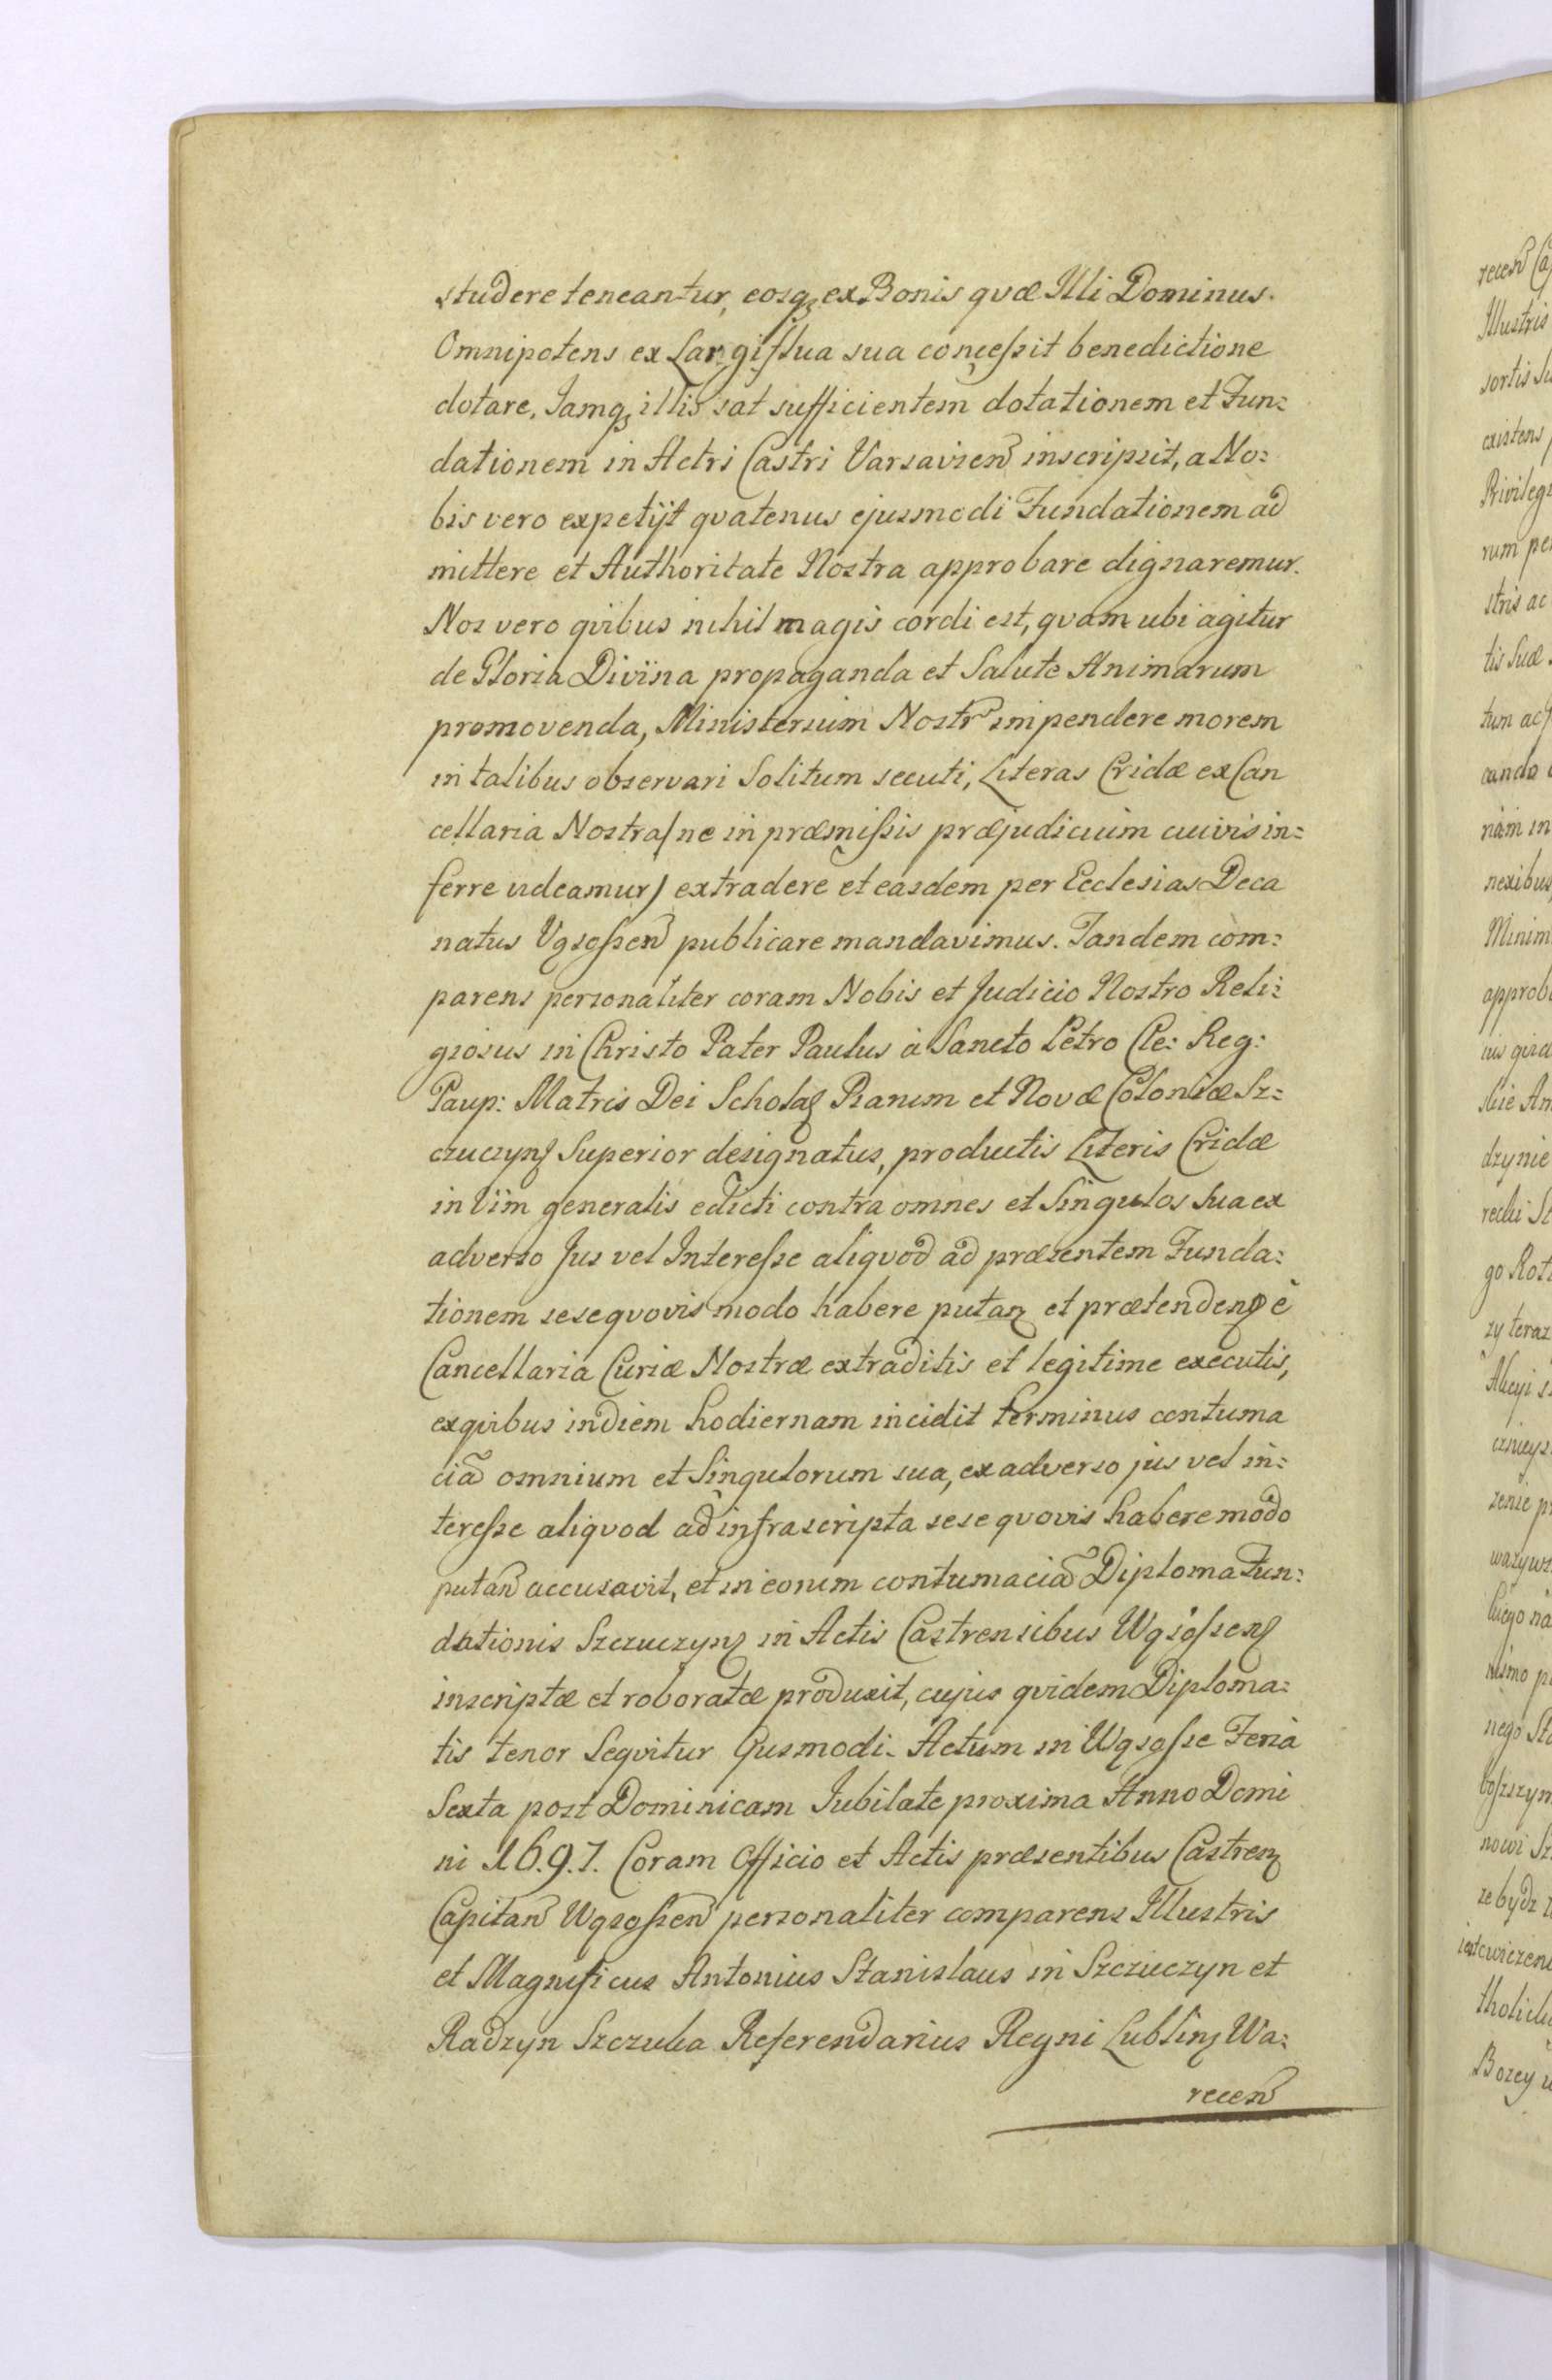 studere teneantur, eosq₃ ex Bonis qvæ Illi Dominus.
Omnipotens ex Largiflua sua concessit benedictione
dotare, Jamq₃ illis sat sufficientem dotationem et Fun=
dationem in Actis Castri Varsavien̄ inscripsit, a No=
bis vero expetijt qvatenus ejusmodi Fundationem ad
mittere et Authoritate Nostra approbare dignaremur.
Nos vero qvibus nihil magis cordi est, qvam ubi agitur
de Gloria Divina propaganda et Salute Animarum
promovenda, Ministerium Nostr̄ impendere morem
in talibus observari Solitum secuti, Literas Cridæ ex Can
cellaria Nostra /ne in præmissis præjudicium cuivis in=
ferre videamur/ extradere et easdem per Ecclesias Deca
natus Vąsossen̄ publicare mandavimus. Tandem com=
parens personaliter coram Nobis et Judicio Nostro Reli=
giosus in Christo Pater Paulus à Sancto Petro Cle: Reg:
Paup: Matris Dei Scholaꝝ Piarum et Novæ Coloniæ Sz=
czuczynȝ Superior designatus, productis Literis Cridæ
in Vim generalis edicti contra omnes et Singulos sua ex
adverso Jus vel Interesse aliqvod ad præsentem Funda=
tionem sese qvovis modo habere putanȝ et prætendenȝ è
Cancellaria Curiæ Nostræ extraditis et legitime executis,
ex qvibus in diem hodiernam incidit terminus contuma
ciā omnium et Singulorum sua, ex adverso jus vel in=
teresse aliqvod ad infrascripta sese qvovis habere modo
putan̄ accusavit, et in eorum contumaciā Diploma Fun=
dationis Szczuczynȝ in Actis Castrensibus Wąsossenȝ
inscriptæ et roboratæ produxit, cujus qvidem Diploma=
tis tenor Seqvitur Ejusmodi. Actum in Wąsosse Feria
Sexta post Dominicam Jubilate proxima Anno Domi
ni 1697. Coram Officio et Actis præsentibus Castrenȝ
Capitan̄ Wąsossen̄ personaliter comparens Illustris
et Magnificus Antonius Stanislaus in Szczuczyn et
Radzyn Szczuka Referendarius Regni Lublinȝ Wa=
recen̄